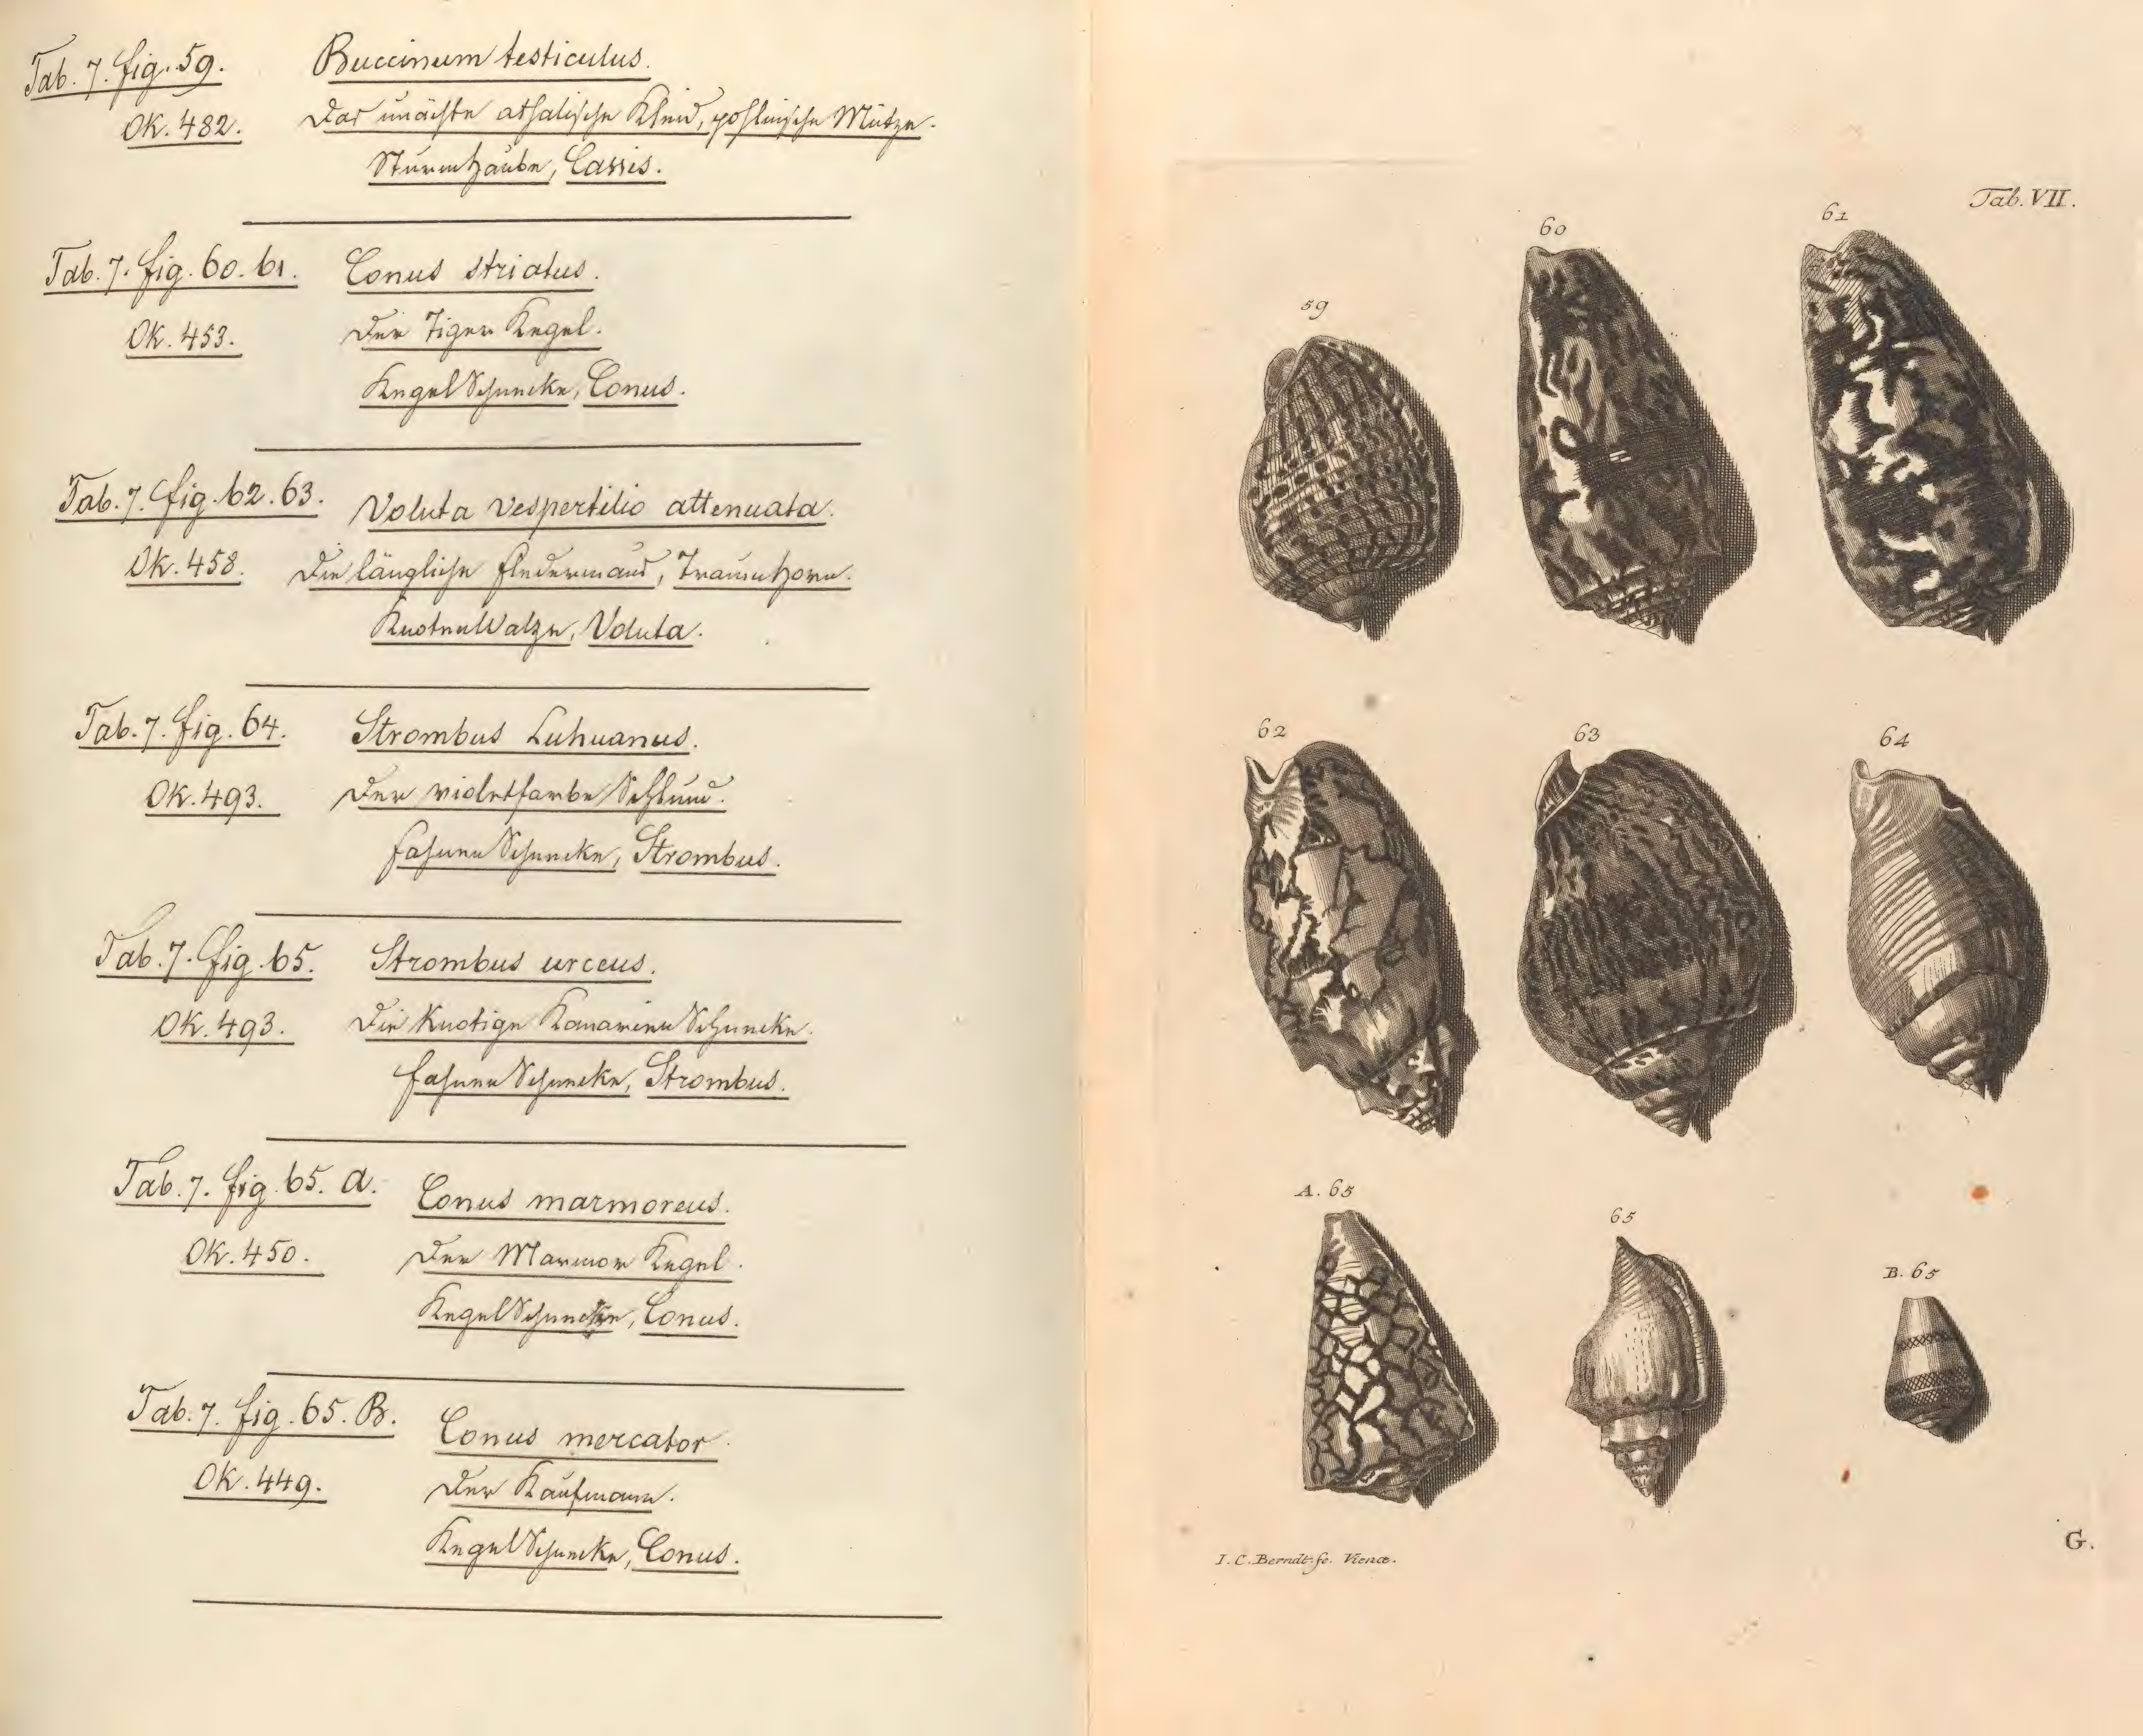 Tab. 7. fig. 59. Buccinum testiculus.
Ok. 482. Das unächte achatische Kleid, pohlnische Mütze.
Sturmhaube, Cassis.
Tab. 7. fig. 60. 61. Conus striatus.
Ok. 453. Der Tiger Kegel.
Kegel Schnecke, Conus.
Tab. 7. fig. 62. 63. Voluta vespertilio attenuata.
Ok. 458. Die längliche Fledermaus, Traumhorn.
Knoten Walze, Voluta.
Tab. 7. fig. 64. Strombus Luhuanus.
Ok. 493. Der violetfarbe Schlund.
Schnecke, Strombus.
Tab. 7. fig. 65. Strombus urceus.
Ok. 493. Die Knotige Kanarien Schnecke.
Schnecke, Strombus.
Tab. 7. fig. 65. A. Conus marmoreus.
Ok. 450. Der Marmor Kegel.
Kegel Schnecke, Conus.
Tab. 7. fig. 65. B. Conus mercator.
Ok. 449. Der Kaufmann.
Kegel Schnecke, Conus.
Tab. VII.
59
60
61
62
63
64
A. 65
65
B. 65
G.
I. C. Berndt fe. Vienæ.